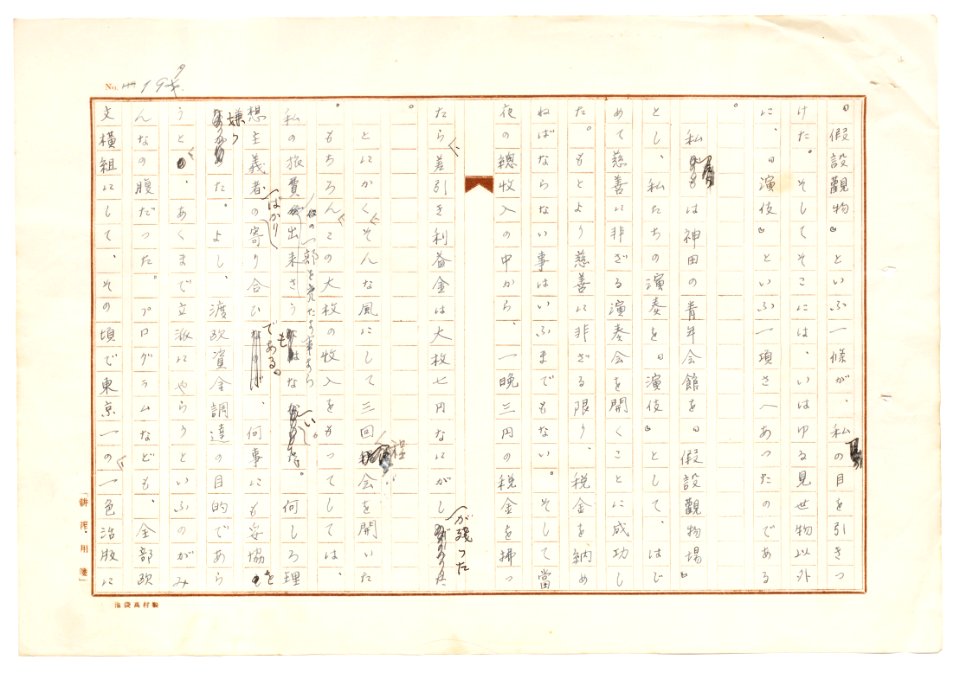 No. 199
『假設觀物』といふ一條が、私の目を引きつ
けた。そしてそこには、いはゆる見世物以外
に、『演伎』といふ一項さへあつたのである
。
私は神田の青年会館を『假設觀物場』
とし、私たちの演奏を『演伎』として、はじ
めて慈善に非ざる演奏会を開くことに成功し
た。もとより慈善に非ざる限り、税金を納め
ねばならない事はいふまでもない。そして當
夜の總收入の中から、一晩三円の税金を拂つ
たら差引き利益金は大枚七円なにがしが残つた
。
とにかくそんな風にして三回程会を開いた
。もちろんこの大枚の收入をもつてしては、
私の旅費の一部を充たす事すら出来さうもない。何しろ理
想主義者ばかりの寄り合ひである。何事にも妥協を
嫌つた。よし、渡欧資金調達の目的であら
うと、あくまで立派にやらうといふのがみ
んなの腹だつた。プログラムなども、全部欧
文横組にして、その頃で東京一の一色活版に
「耕洋・用箋」